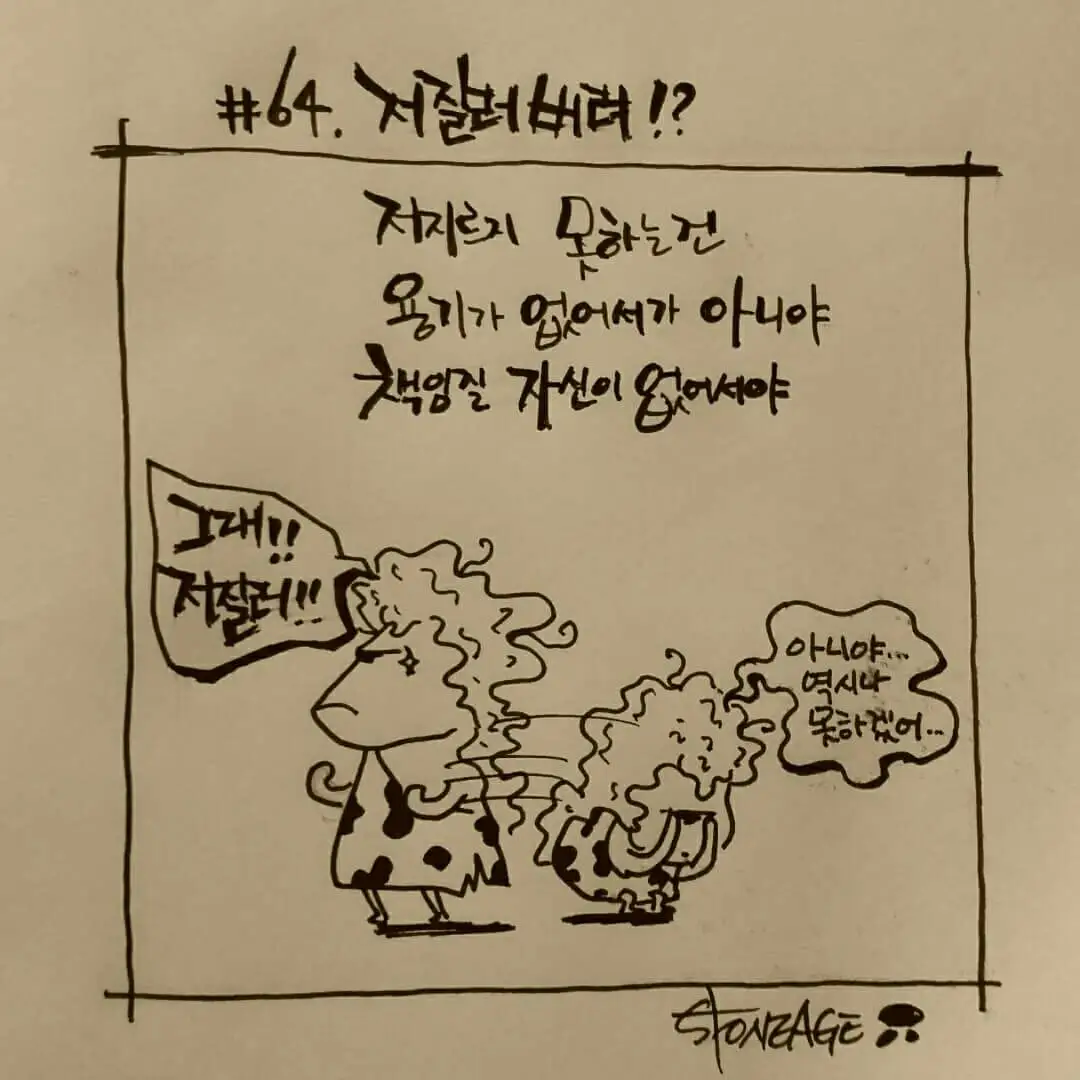 #64. 저질러버려!?
저지르지 못하는건
용기가 없어서가 아니야
책임질 자신이 없어서야
그래!!
저질러!!
아니야...
역시나
못하겠어...
STONEAGE